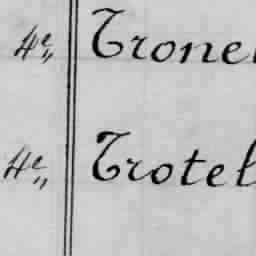 4e„ Trone
4e„ Trotel